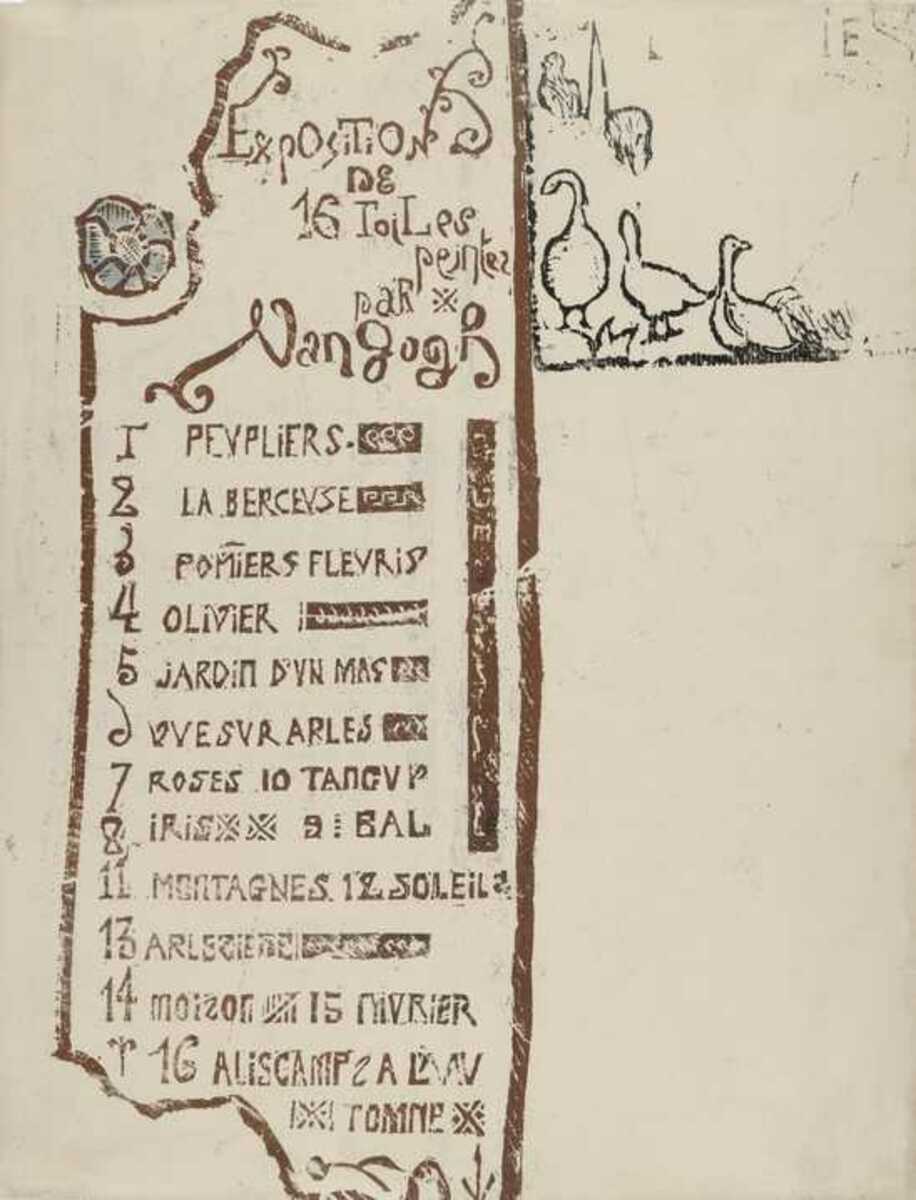 EXPOSITION
DE
16 TOILES
peintes
PAR
Van Gogh
1 PEVPLIERS.
2 LA BERCEVSE
3 POM̄IERS FLEVRIS
4 OLIVIER
5 JARDIN D'VN MAS
6 VVE SVR ARLES
7 ROSES 10 TANGVY
8 IRIS 9: BAL
11 MONTAGNES. 12 SOLEILS
13 ARLESIENE
14 MOISON 15
16 ALISCAMPS A L'AV
TOMNE